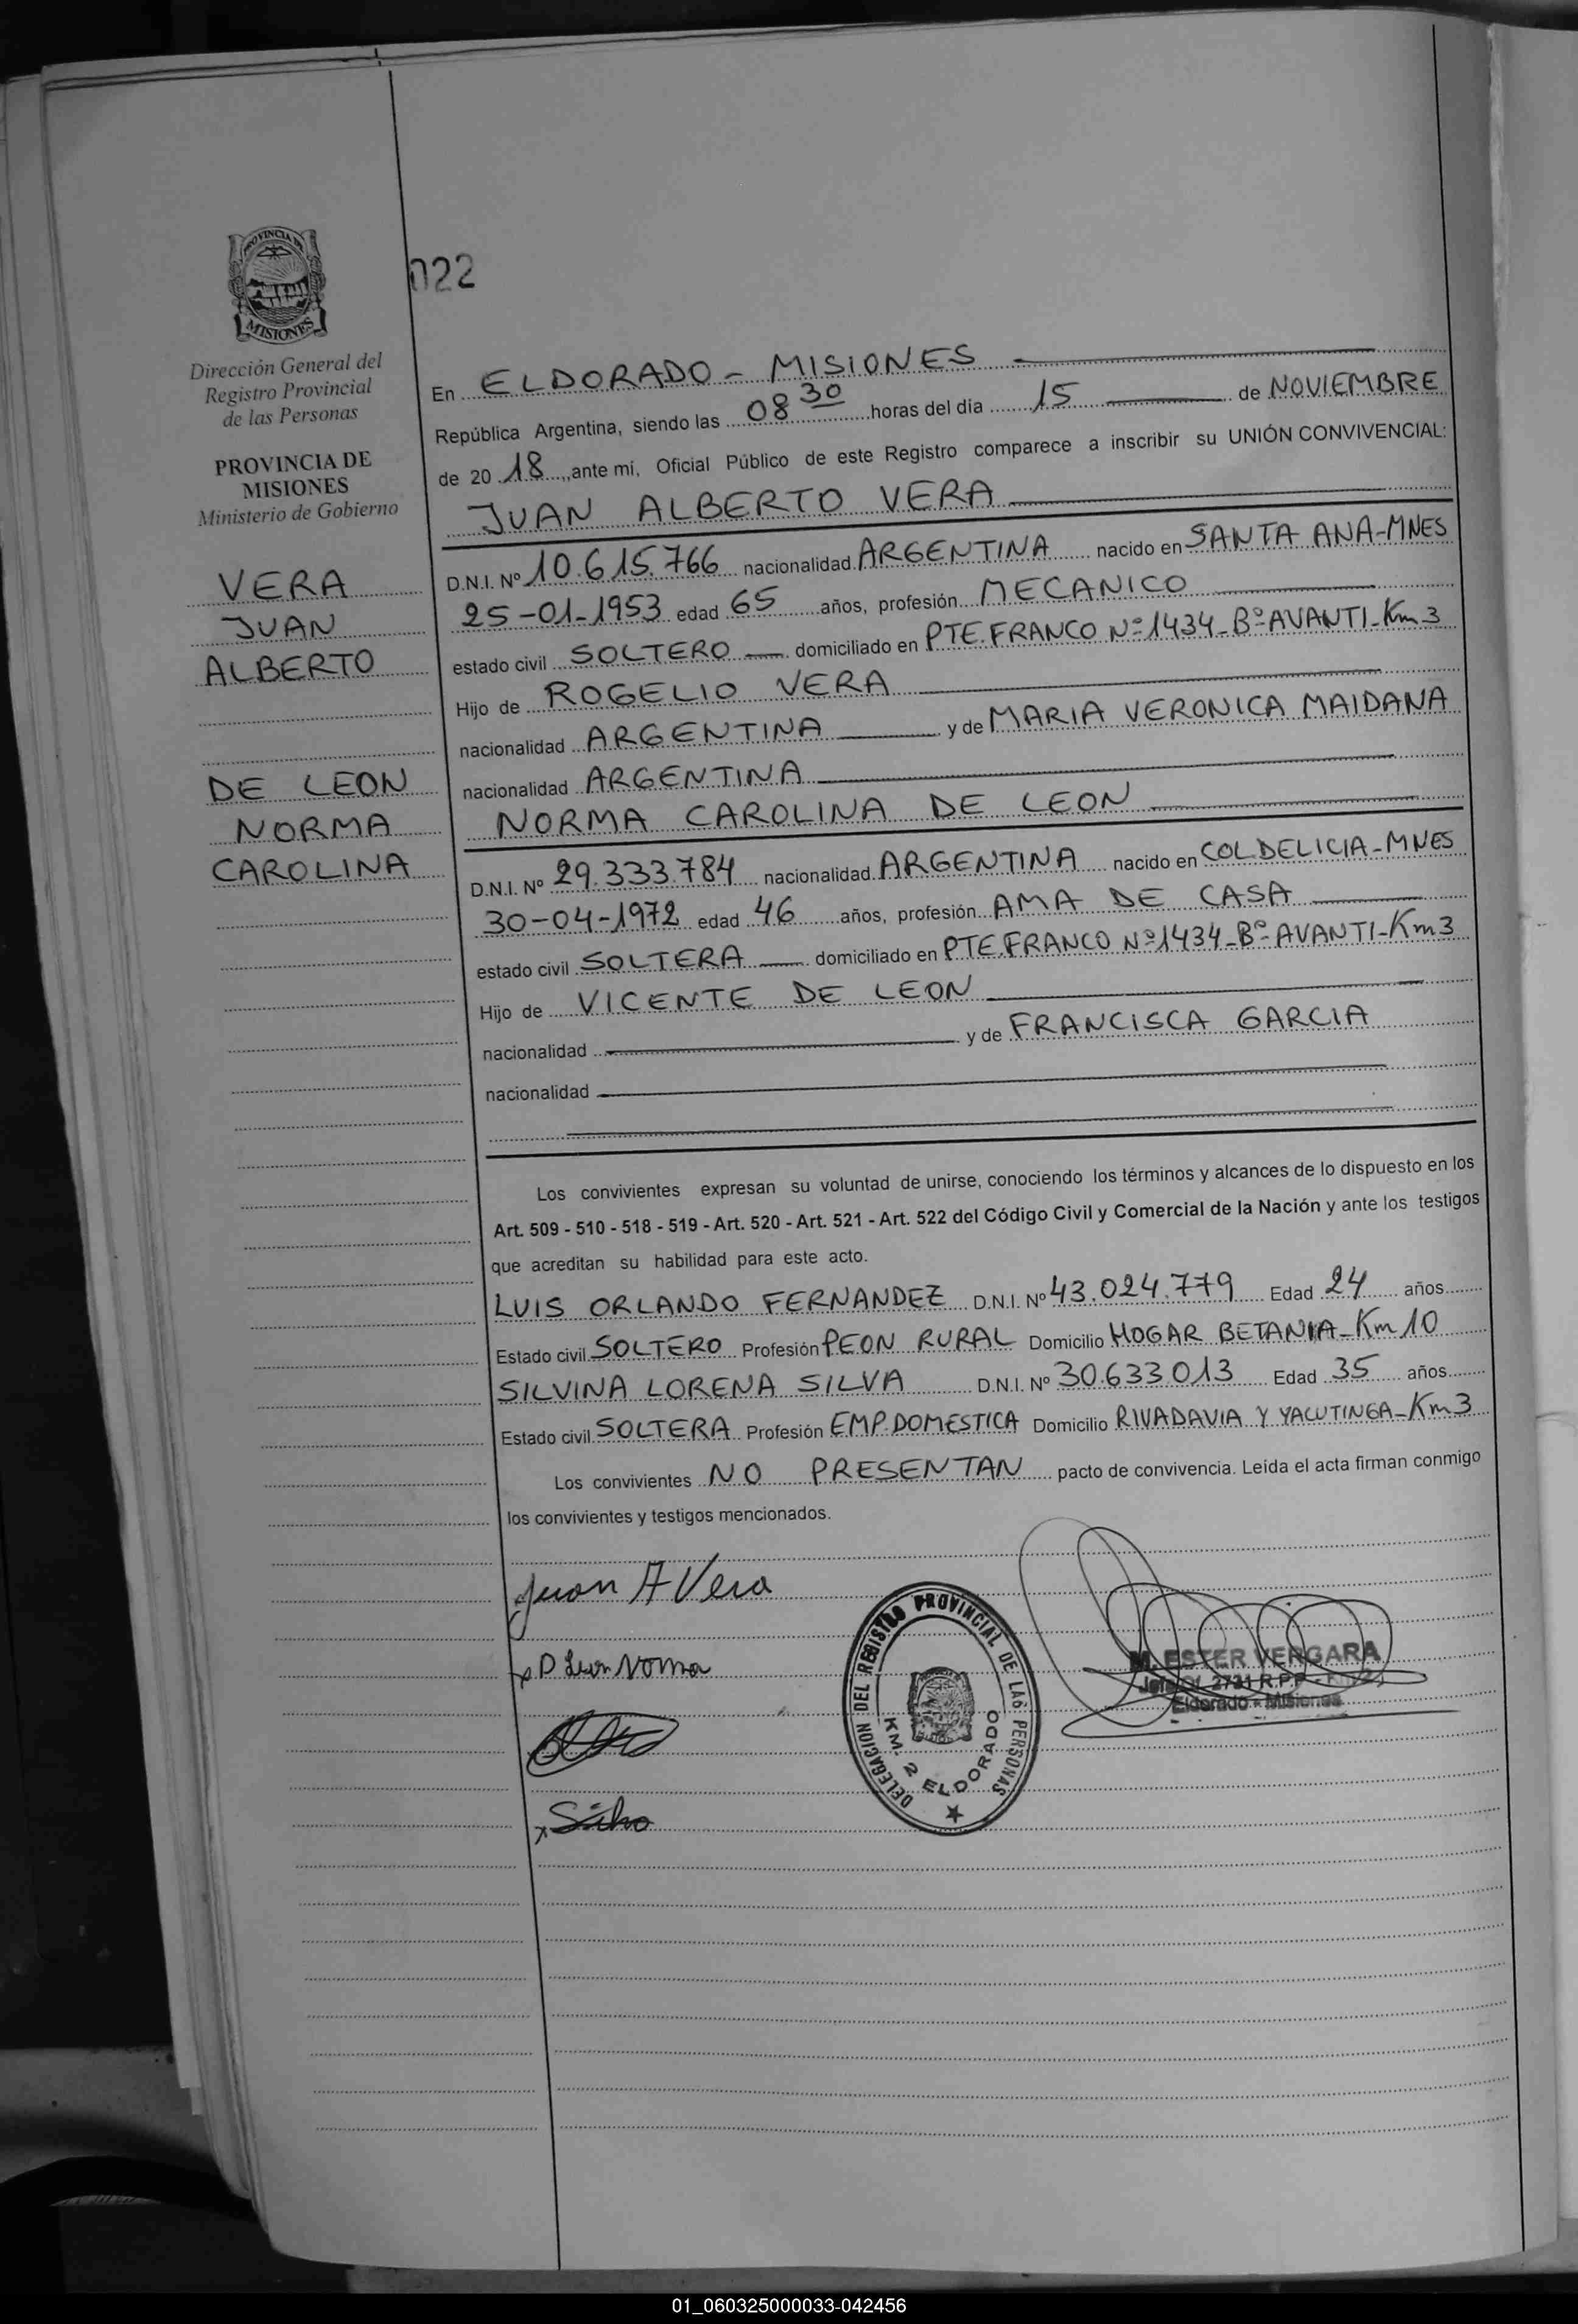 PROVINCIA DE
MISIONES
Dirección General del
Registro Provincial
de las Personas
PROVINCIA DE
MISIONES
Ministerio de Gobierno
VERA
JUAN
ALBERTO
DE LEON
NORMA
CAROLINA
022
En ELDORADO - MISIONES
República Argentina, siendo las 08 30 horas del día 15 de NOVIEMBRE
de 20 18, ante mi, Oficial Público de este Registro comparece a inscribir su UNIÓN CONVIVENCIAL:
JUAN ALBERTO VERA
D.N.I. Nº 10.615.766 nacionalidad ARGENTINA nacido en SANTA ANA-MNES
25-01-1953 edad 65 años, profesión MECANICO
estado civil SOLTERO domiciliado en PTE.FRANCO Nº1434-Bº AVANTI-Km 3
Hijo de ROGELIO VERA
nacionalidad ARGENTINA y de MARIA VERONICA MAIDANA
nacionalidad ARGENTINA
NORMA CAROLINA DE LEON
D.N.I. Nº 29.333.784 nacionalidad ARGENTINA nacido en COL.DELICIA-MNES
30-04-1972 edad 46 años, profesión AMA DE CASA
estado civil SOLTERA domiciliado en PTE.FRANCO Nº1434-Bº-AVANTI-Km3
Hijo de VICENTE DE LEON
nacionalidad y de FRANCISCA GARCIA
nacionalidad
Los convivientes expresan su voluntad de unirse, conociendo los términos y alcances de lo dispuesto en los
Art. 509 - 510 - 518 - 519 - Art. 520 - Art. 521 - Art. 522 del Código Civil y Comercial de la Nación y ante los testigos
que acreditan su habilidad para este acto.
LUIS ORLANDO FERNANDEZ D.N.I. Nº 43.024.779 Edad 24 años
Estado civil SOLTERO Profesión PEON RURAL Domicilio HOGAR BETANIA-Km 10
SILVINA LORENA SILVA D.N.I. Nº 30.633.013 Edad 35 años
Estado civil SOLTERA Profesión EMP.DOMESTICA Domicilio RIVADAVIA Y YACUTINGA-Km3
Los convivientes NO PRESENTAN pacto de convivencia. Leída el acta firman conmigo
los convivientes y testigos mencionados.
Juan A Vera
Norma
DELEGACION DEL REGISTRO PROVINCIAL DE LAS PERSONAS
KM. 2 ELDORADO
M. ESTER VERGARA
Eldorado - Misiones
01_060325000033-042456